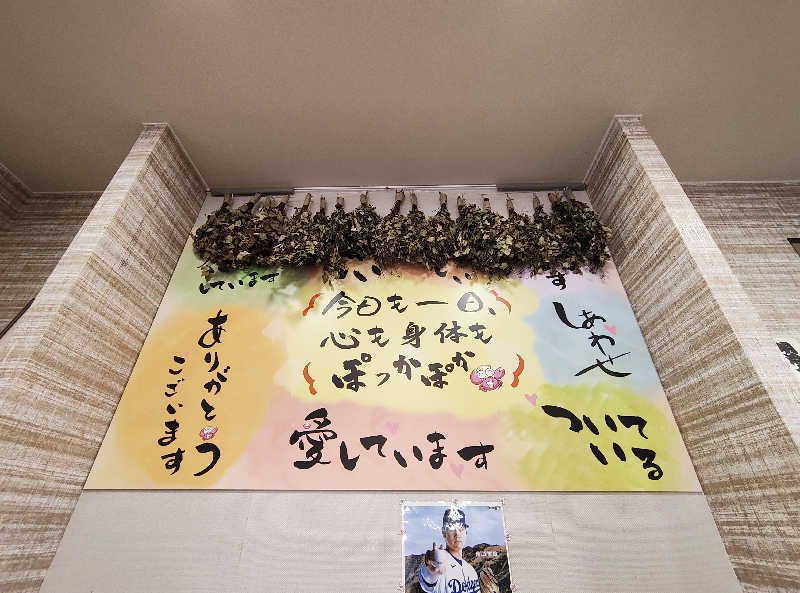 しています
す
今日も一日、
心も身体も
ぽっかぽか
しあわせ
ありがとう
ございます
愛しています
ついて
いる
Dodgers